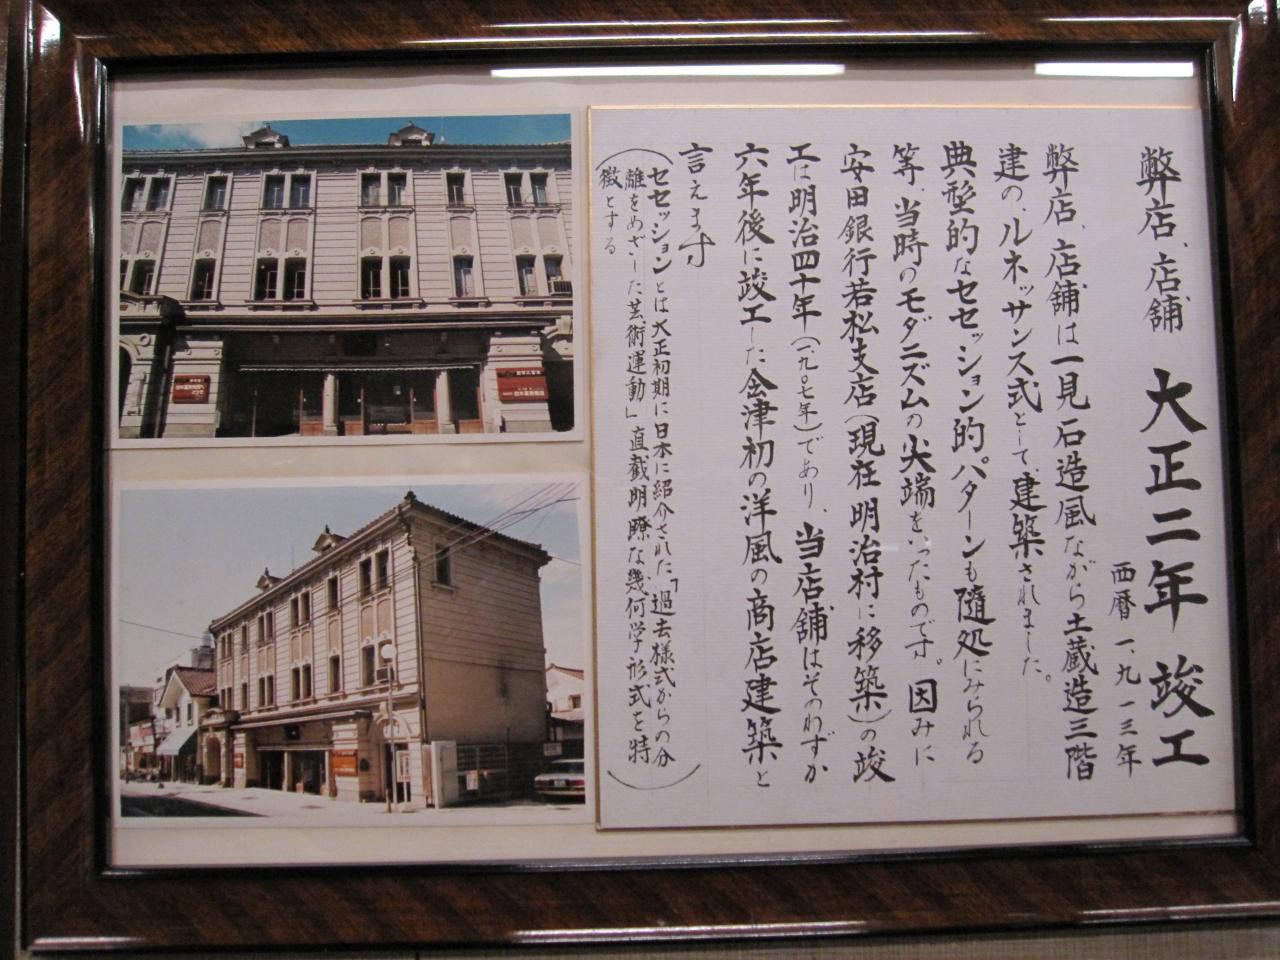 弊店、店舗 大正二年 竣工
西暦 一、九一三年
弊店、店舗は一見石造風ながら土蔵造三階
建の、ルネッサンス式として、建築されました。
典型的なセセッション的パターンも随処にみられる
等、当時のモダニズムの尖端をいったものです。因みに
安田銀行若松支店(現在明治村に移築)の竣
工は明治四十年(一、九〇七年)であり、当店舗はそのわずか
六年後に竣工した会津初の洋風の商店建築と
言えます
(セセッションとは大正初期に日本に紹介された、「過去様式からの分
離をめざした芸術運動」直截明瞭な幾何学形式を特
徴とする)